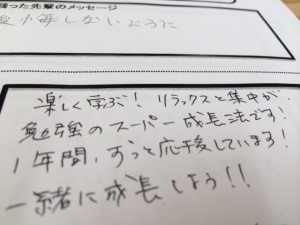 った先輩のメッセージ
後悔しないように
楽しく学ぶ！リラックスと集中が
勉強のスーパー成長法です！
1年間、ずっと応援しています！
一緒に成長しよう！！